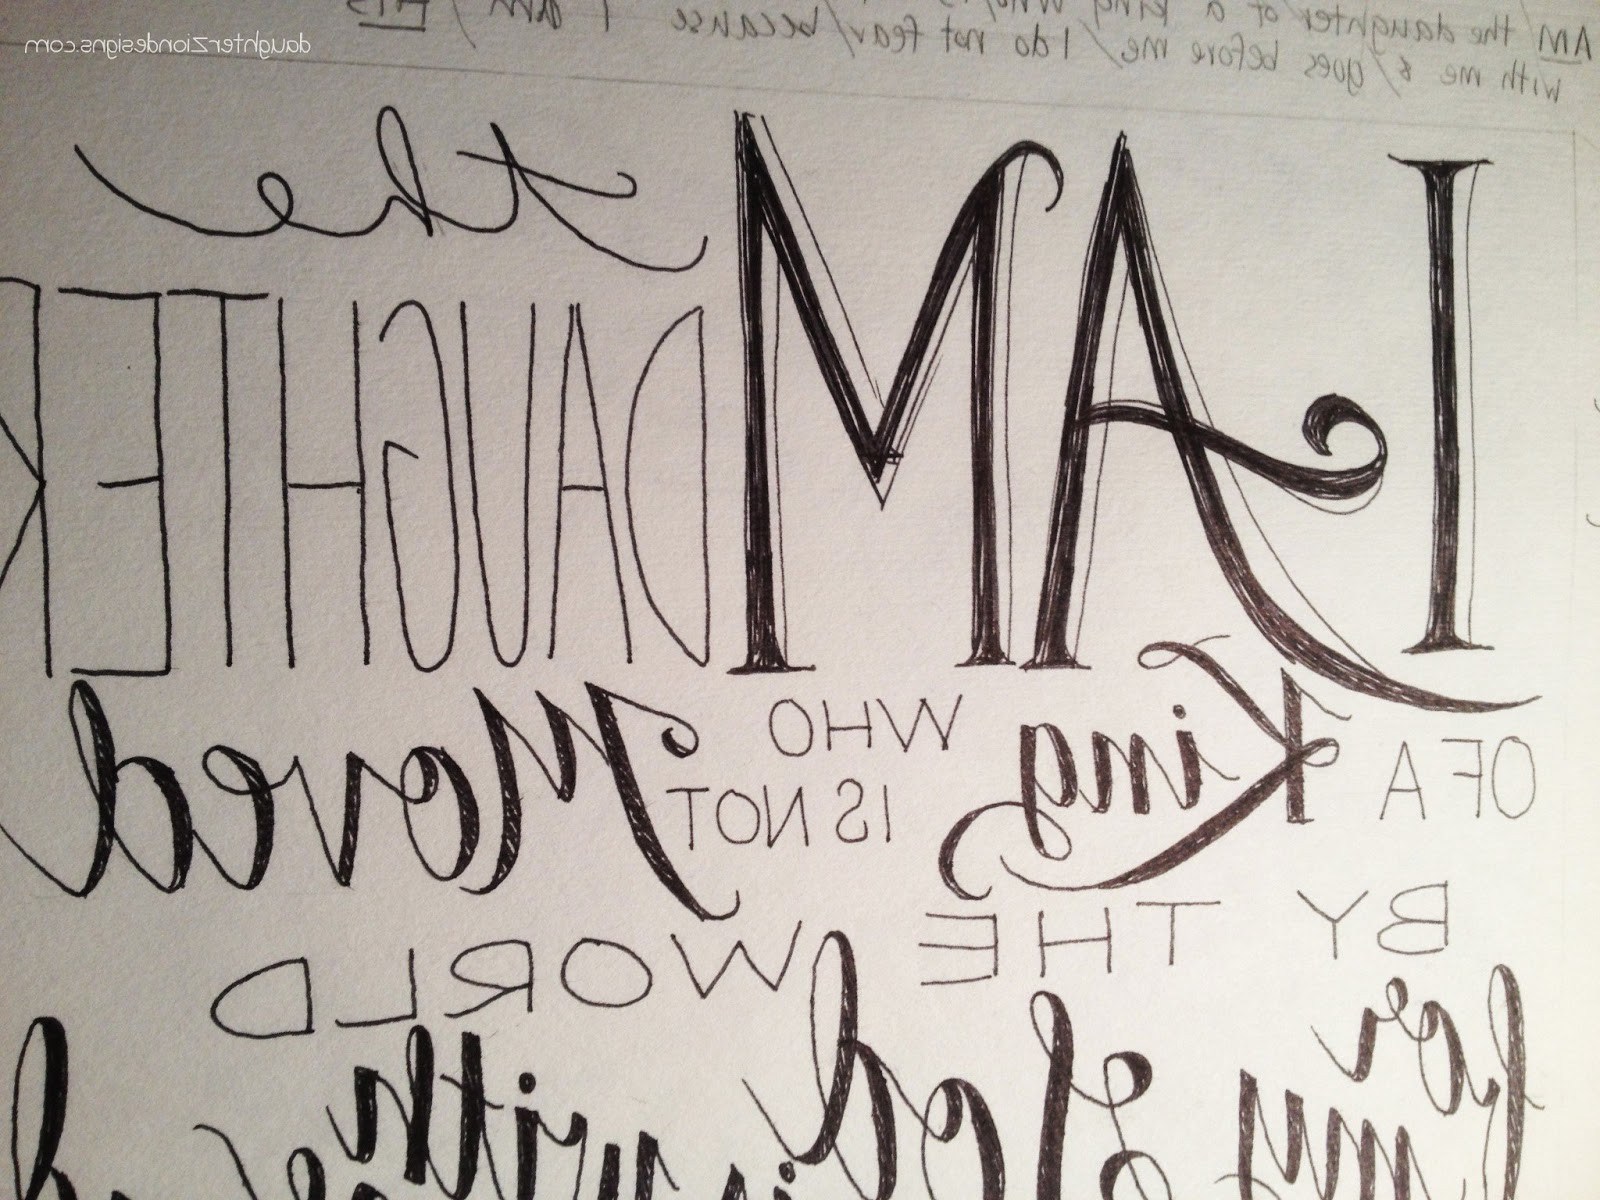 AM / the daughter of a king who/is
with me & /goes before me,/I do not fear/because I am / HIS
daughterZiondesigns.com
I AM the
DAUGHTER
OF A King WHO
IS NOT Moved
BY THE WORLD
for
my God is with